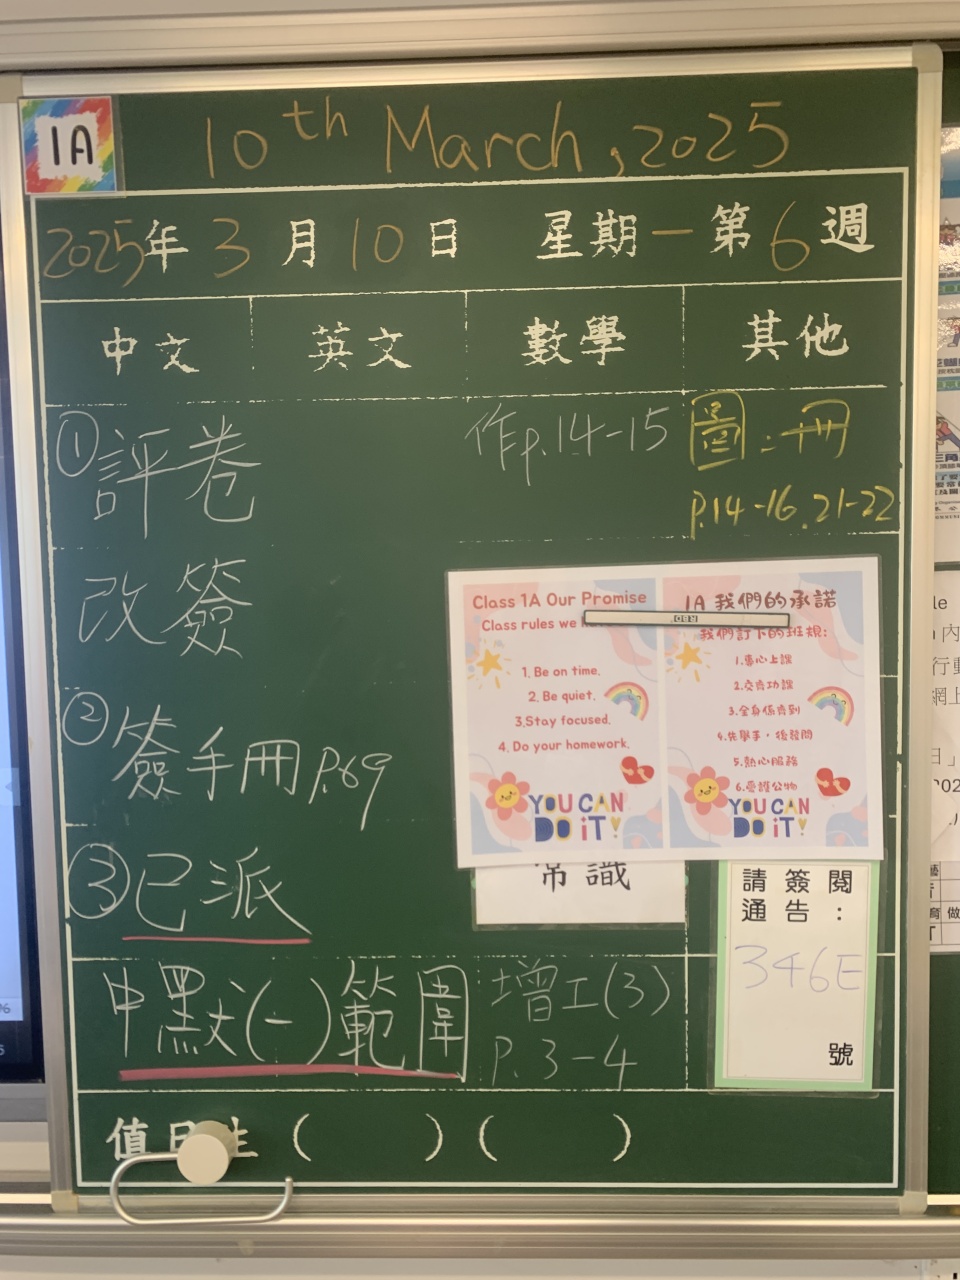 1A
10th March, 2025
2025年3月10日 星期一 第6週
中文 英文 數學 其他
①評卷
改簽
②簽手冊p.69
③已派
中默(一)範圍
作p.14-15
圖:冊
p.14-16, 21-22
Class 1A Our Promise
Class rules we
1. Be on time.
2. Be quiet.
3.Stay focused.
4. Do your homework.
YOU CAN
DO iT!
1A 我們的承諾
我們訂下的班規:
1.專心上課
2.交齊功課
3.全身係肖到
4.先舉手,後發問
5.熱心服務
6.愛護公物
YOU CAN
DO iT!
常識
增工(3)
P.3-4
請簽閱
通告:
346E
號
值日生 ( ) ( )